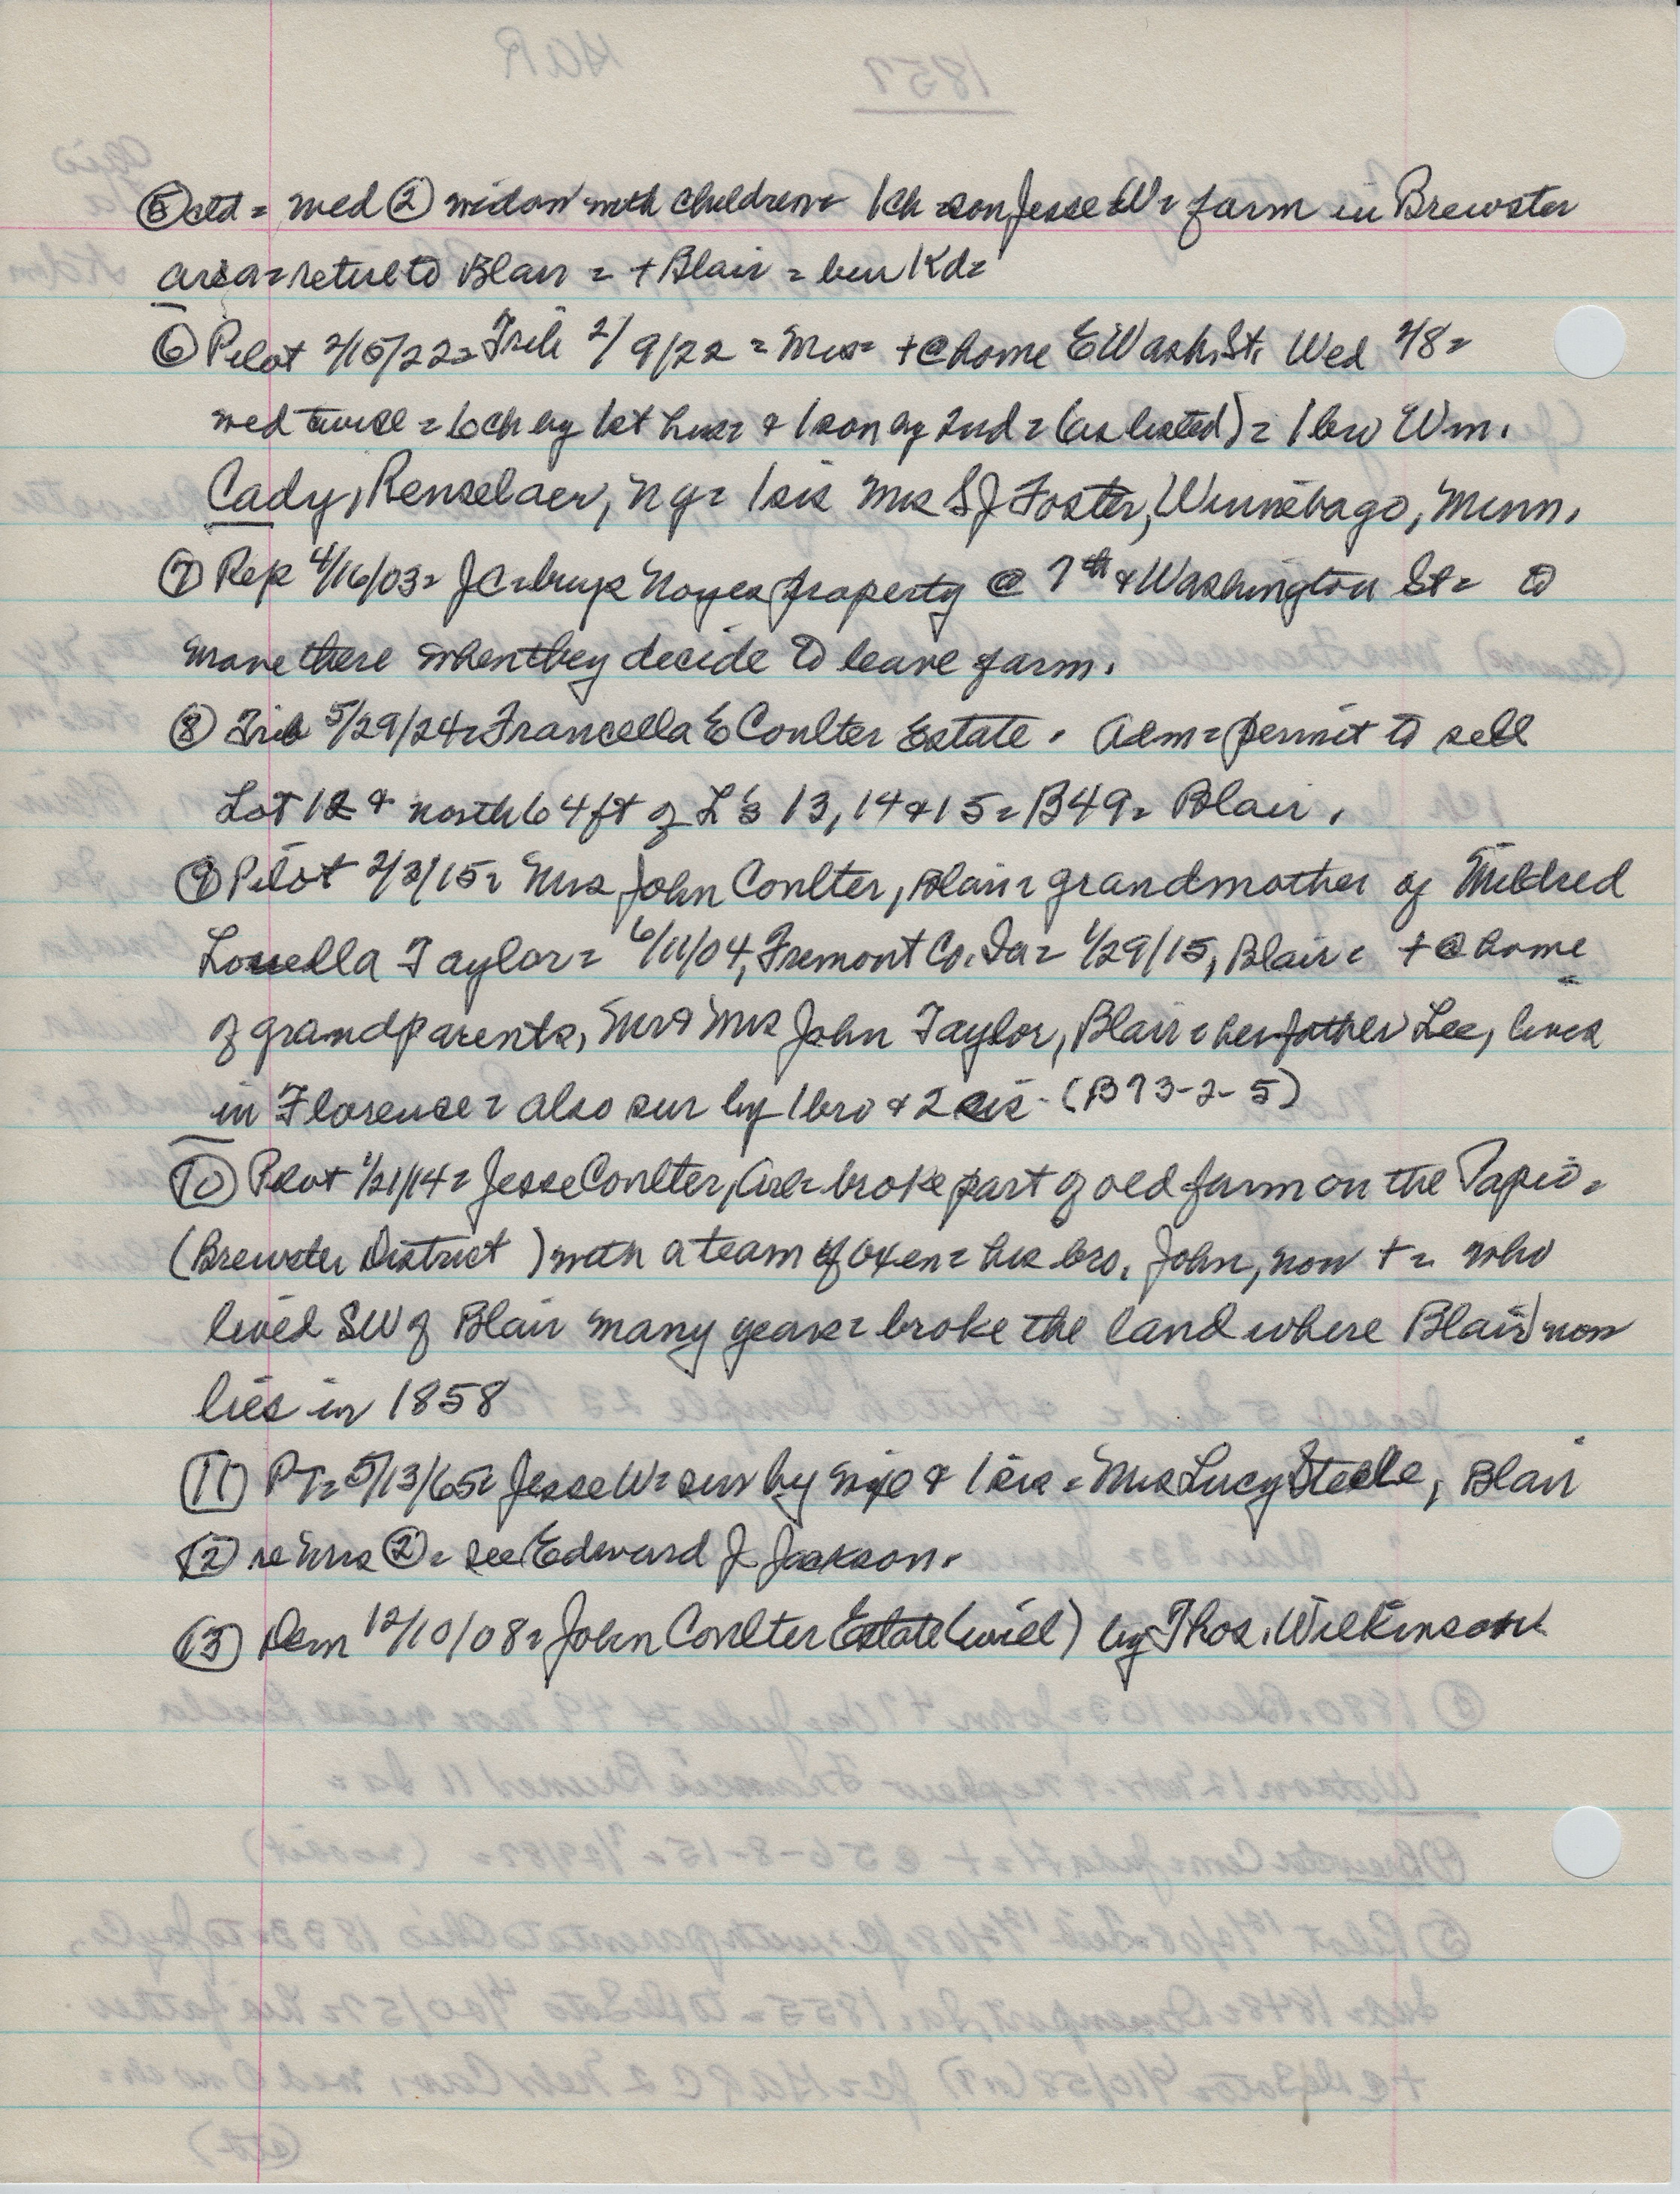 ⑤ ctd = med ② widow with children = 1ch = son Jesse W = farm in Brewster
area = retire to Blair = + Blair = bur Kd =
⑥ Pilot 2/15/22 = Trib 2/9/22 = Mrs = + @ home E Wash. St. Wed 2/8 =
med twice = 6ch by 1st hus = & 1 son by 2nd = (as listed) = 1 bro Wm.
Cady, Renselaer, NY = 1 sis Mrs S J Foster, Winnebago, Minn.
⑦ Rep 4/16/03 = JC = buys Noyes property @ 7th & Washington St = to
move there when they decide to leave farm.
⑧ Trib 5/29/24 = Francella E Coulter Estate. Adm = permit to sell
Lot 12 & north 64 ft of L's 13, 14 & 15 = B49 = Blair.
⑨ Pilot 2/3/15 = Mrs John Coulter, Blair = grandmother of Mildred
Louella Taylor = 6/11/04, Fremont Co. Ia = 1/29/15, Blair = + @ home
of grandparents, Mr & Mrs John Taylor, Blair = her father Lee, lives
in Florence = also sur by 1 bro & 2 sis - (B73-2-5)
⑩ Pilot 1/21/14 = Jesse Coulter, Arl = broke part of old farm on the Papio =
(Brewster District) with a team of oxen = his bro. John, now + = who
lived SW of Blair many years = broke the land where Blair now
lies in 1858
⑪ PT = 5/13/65 = Jesse W = sur by wife & 1 sis = Mrs Lucy Steele, Blair
⑫ re Mrs ② = see Edward J Jackson.
⑬ Dem 12/10/08 = John Coulter Estate (will) by Thos. Wilkinson